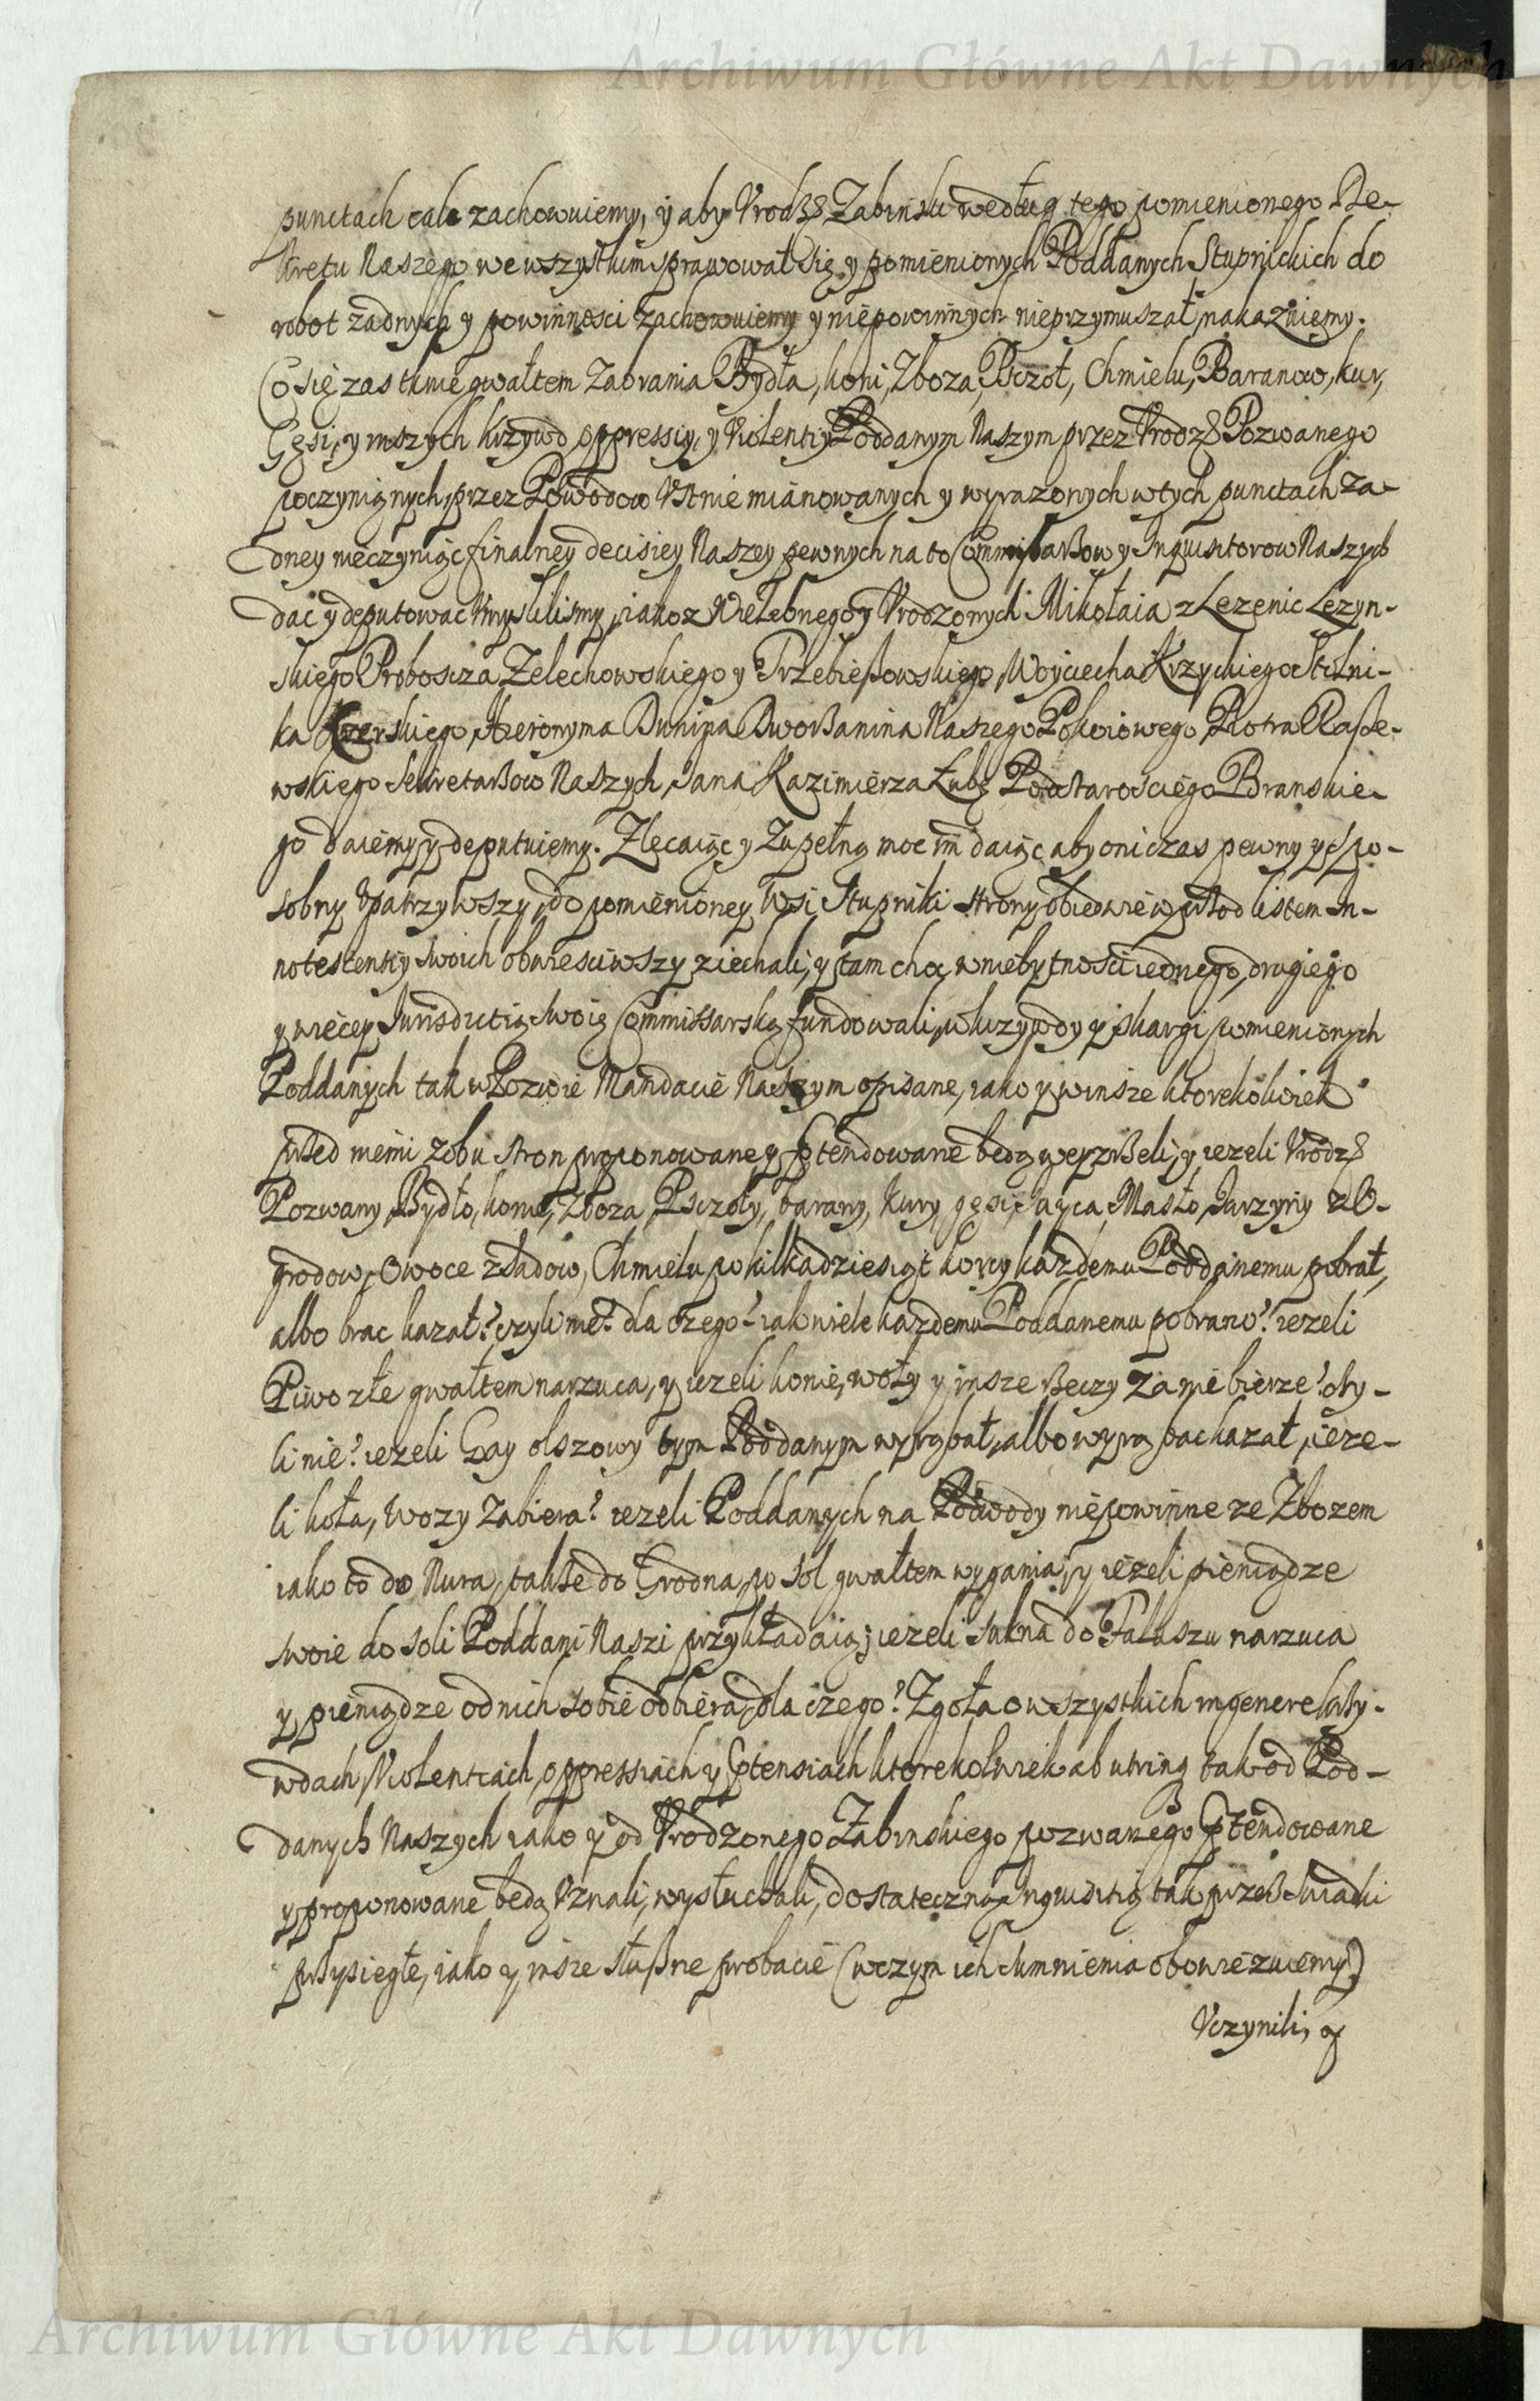 Archiwum Główne Akt Dawnych
punctach cale zachowuiemy, y aby Vrodz. Zabinski według tego pomienionego De-
kretu Naszego we wszystkim sprawował się, y pomienionych Poddanych Stupnickich do
robot żadnych y powinnosci zachowuiemy y niepowinnych nieprzymuszał, nakazuiemy.
Co się zas tknie gwałtem zabrania Bydła, koni, Zboza, Psczoł, Chmielu, Baranow, kur,
Gęsi, y inszych krzywd, oppressiy, y Violentiy Poddanym Naszym przez Vrodz. Pozwanego
poczynionych, przez Powodow Vstnie mianowanych y wyrazonych w tych punctach ża-
dney nieczyniąc finalney decisiey Naszey pewnych na to Commissarzow y Inquisitorow Naszych
dać y deputować Vmyslilismy, iakoz Wielebnego y Vrodzonych Mikołaia z Lezenic Lezyn-
skiego Proboscza Zelechowskiego y Trzebieszowskiego, Woyciecha Krzyckiego Stolni-
ka, Hieronyma Dunina Dworzanina Naszego Pokoiowego, Piotra Rasze-
wskiego Sekretarzow Naszych, Jana Kazimierza Łubę Podstarosciego Branskie-
go daiemy y deputuiemy. Zlecaiąc y Zupełną moc im daiąc aby oni czas pewny y spo-
sobny Vpatrzywszy, do pomienioney Wsi Stupniki strony obiedwie wprzod listem In-
notescentiy swoich obwiesciwszy ziechali, y tam choć w niebytnosci iednego, drugiego
y więcey Jurisdictią swoię Commissarską fundowali, w krzywdy y skargi pomienionych
Poddanych tak w Pozwie Mandacie Naszym opisane, iako y w insze ktorekolwiek
przed niemi z obu stron proponowane y Ptendowane będą weyzrzeli, y iezeli Vrodz.
Pozwany, Bydło, konie, Zboza, Psczoły, barany, kury, gęsi, Jayca, Masło, Jarzyny z O-
grodow, Owoce z Sadow, Chmielu po kilkadziesiąt korcy kazdemu Poddanemu pobrał,
albo brac kazał? czyli nie? dla czego? iak wiele kazdemu Poddanemu pobrano? iezeli
Piwo złe gwałtem narzuca, y iezeli konie, woły y insze rzeczy za nie bierze? czy-
li nie? iezeli Gay olszowy tym Poddanym wyrąbał, albo wyrąbac kazał, ieze-
li koła, Wozy Zabiera? iezeli Poddanych na Podwody niepowinne ze Zbozem
iako to do Nura, takze do Grodna, po sol gwałtem wygania, y iezeli pieniądze
swoie do soli Poddani Naszi przykładaią; iezeli sukna do Faluszu narzuca
y pieniądze od nich sobie odbiera, dla czego? Zgoła o wszystkich in genere krzy-
wdach, Violentiach, oppressiach y Ptensiach ktorekolwiek ab utrinq tak od Pod-
danych Naszych iako y od Vrodzonego Zabinskiego pozwanego Ptendowane
y proponowane będą Vznali, wysłuchali, dostateczną Inquisitią tak przez swiadki
przysiegłe, iako y insze słuszne probacie (w czym ich Sumnienia obowięzuiemy)
Vczynili, y
Archiwum Główne Akt Dawnych